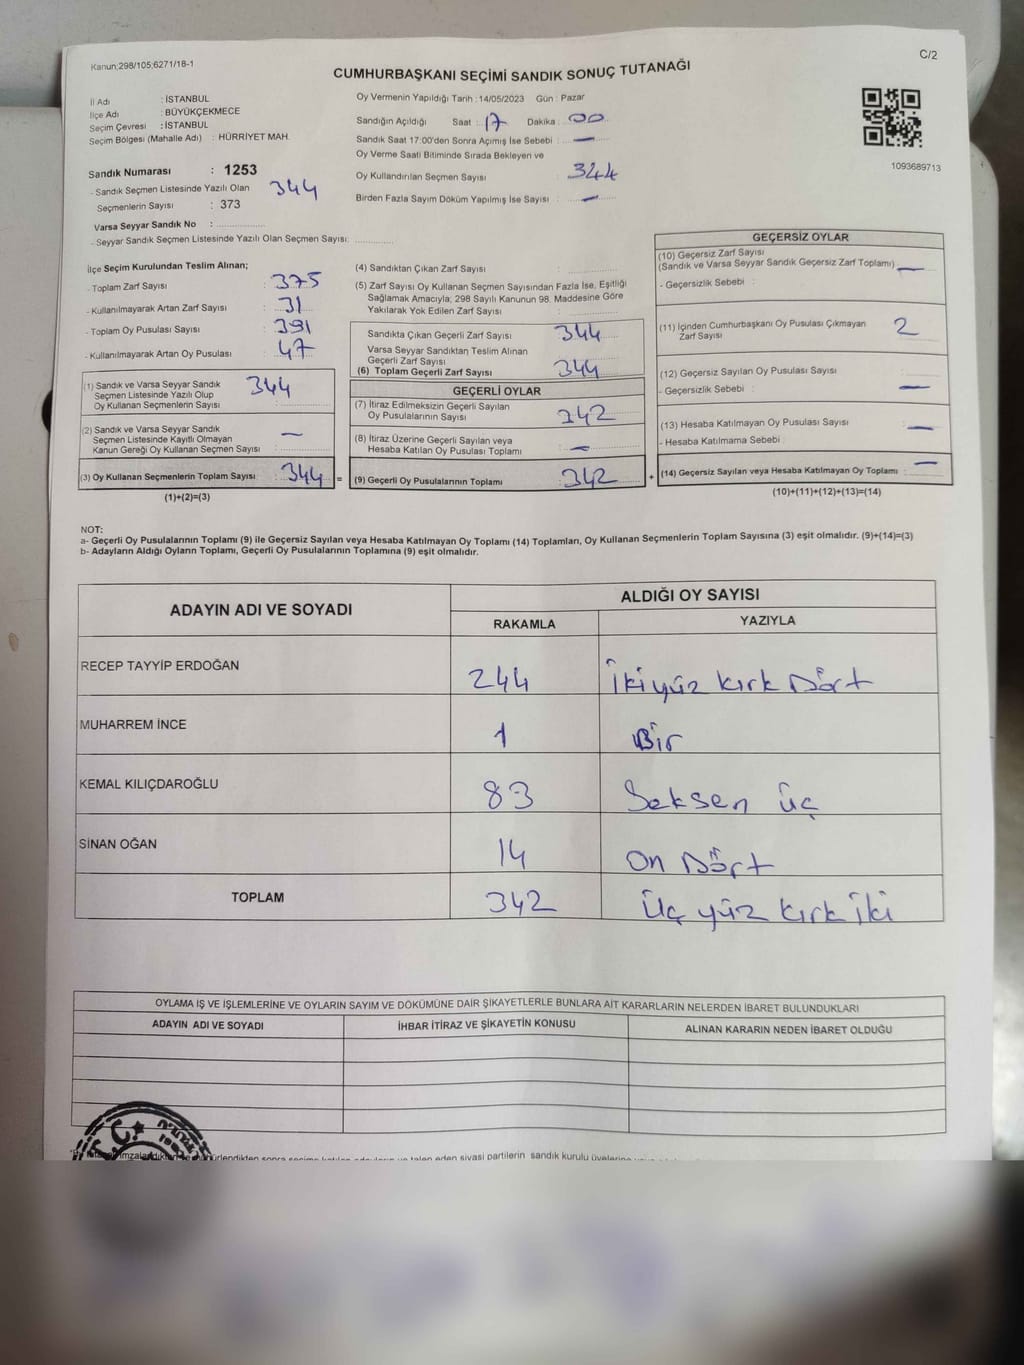 Kanun:298/105;6271/18-1
C/2
CUMHURBAŞKANI SEÇİMİ SANDIK SONUÇ TUTANAĞI
İl Adı : İSTANBUL
İlçe Adı : BÜYÜKÇEKMECE
Seçim Çevresi : İSTANBUL
Seçim Bölgesi (Mahalle Adı) : HÜRRİYET MAH.
Oy Vermenin Yapıldığı Tarih : 14/05/2023 Gün : Pazar
Sandığın Açıldığı Saat : 17 Dakika : 00
Sandık Saat 17:00'den Sonra Açımış İse Sebebi : —
Oy Verme Saati Bitiminde Sırada Bekleyen ve
Oy Kullandırılan Seçmen Sayısı : 344
Birden Fazla Sayım Döküm Yapılmış İse Sayısı : —
1093689713
Sandık Numarası : 1253
- Sandık Seçmen Listesinde Yazılı Olan 344
Seçmenlerin Sayısı : 373
Varsa Seyyar Sandık No :
- Seyyar Sandık Seçmen Listesinde Yazılı Olan Seçmen Sayısı:
İlçe Seçim Kurulundan Teslim Alınan;
- Toplam Zarf Sayısı : 375
- Kullanılmayarak Artan Zarf Sayısı : 31
- Toplam Oy Pusulası Sayısı : 391
- Kullanılmayarak Artan Oy Pusulası : 47
(1) Sandık ve Varsa Seyyar Sandık 344
Seçmen Listesinde Yazılı Olup
Oy Kullanan Seçmenlerin Sayısı :
(2) Sandık ve Varsa Seyyar Sandık —
Seçmen Listesinde Kayıtlı Olmayan
Kanun Gereği Oy Kullanan Seçmen Sayısı :
(3) Oy Kullanan Seçmenlerin Toplam Sayısı : 344 =
(1)+(2)=(3)
(4) Sandıktan Çıkan Zarf Sayısı :
(5) Zarf Sayısı Oy Kullanan Seçmen Sayısından Fazla İse, Eşitliği
Sağlamak Amacıyla; 298 Sayılı Kanunun 98. Maddesine Göre
Yakılarak Yok Edilen Zarf Sayısı :
Sandıkta Çıkan Geçerli Zarf Sayısı : 344
Varsa Seyyar Sandıktan Teslim Alınan
Geçerli Zarf Sayısı :
(6) Toplam Geçerli Zarf Sayısı : 344
GEÇERLİ OYLAR
(7) İtiraz Edilmeksizin Geçerli Sayılan
Oy Pusulalarının Sayısı : 342
(8) İtiraz Üzerine Geçerli Sayılan veya
Hesaba Katılan Oy Pusulası Toplamı : —
(9) Geçerli Oy Pusulalarının Toplamı : 342 +
GEÇERSİZ OYLAR
(10) Geçersiz Zarf Sayısı
(Sandık ve Varsa Seyyar Sandık Geçersiz Zarf Toplamı) : —
- Geçersizlik Sebebi :
(11) İçinden Cumhurbaşkanı Oy Pusulası Çıkmayan 2
Zarf Sayısı
(12) Geçersiz Sayılan Oy Pusulası Sayısı :
- Geçersizlik Sebebi : —
(13) Hesaba Katılmayan Oy Pusulası Sayısı : —
- Hesaba Katılmama Sebebi :
(14) Geçersiz Sayılan veya Hesaba Katılmayan Oy Toplamı : —
(10)+(11)+(12)+(13)=(14)
NOT:
a- Geçerli Oy Pusulalarının Toplamı (9) ile Geçersiz Sayılan veya Hesaba Katılmayan Oy Toplamı (14) Toplamları, Oy Kullanan Seçmenlerin Toplam Sayısına (3) eşit olmalıdır. (9)+(14)=(3)
b- Adayların Aldığı Oyların Toplamı, Geçerli Oy Pusulalarının Toplamına (9) eşit olmalıdır.
ADAYIN ADI VE SOYADI
ALDIĞI OY SAYISI
RAKAMLA YAZIYLA
RECEP TAYYİP ERDOĞAN 244 İkiyüz kırk Dört
MUHARREM İNCE 1 Bir
KEMAL KILIÇDAROĞLU 83 Seksen üç
SİNAN OĞAN 14 On Dört
TOPLAM 342 Üç yüz kırk iki
OYLAMA İŞ VE İŞLEMLERİNE VE OYLARIN SAYIM VE DÖKÜMÜNE DAİR ŞİKAYETLERLE BUNLARA AİT KARARLARIN NELERDEN İBARET BULUNDUKLARI
ADAYIN ADI VE SOYADI İHBAR İTİRAZ VE ŞİKAYETİN KONUSU ALINAN KARARIN NEDEN İBARET OLDUĞU
T.C.